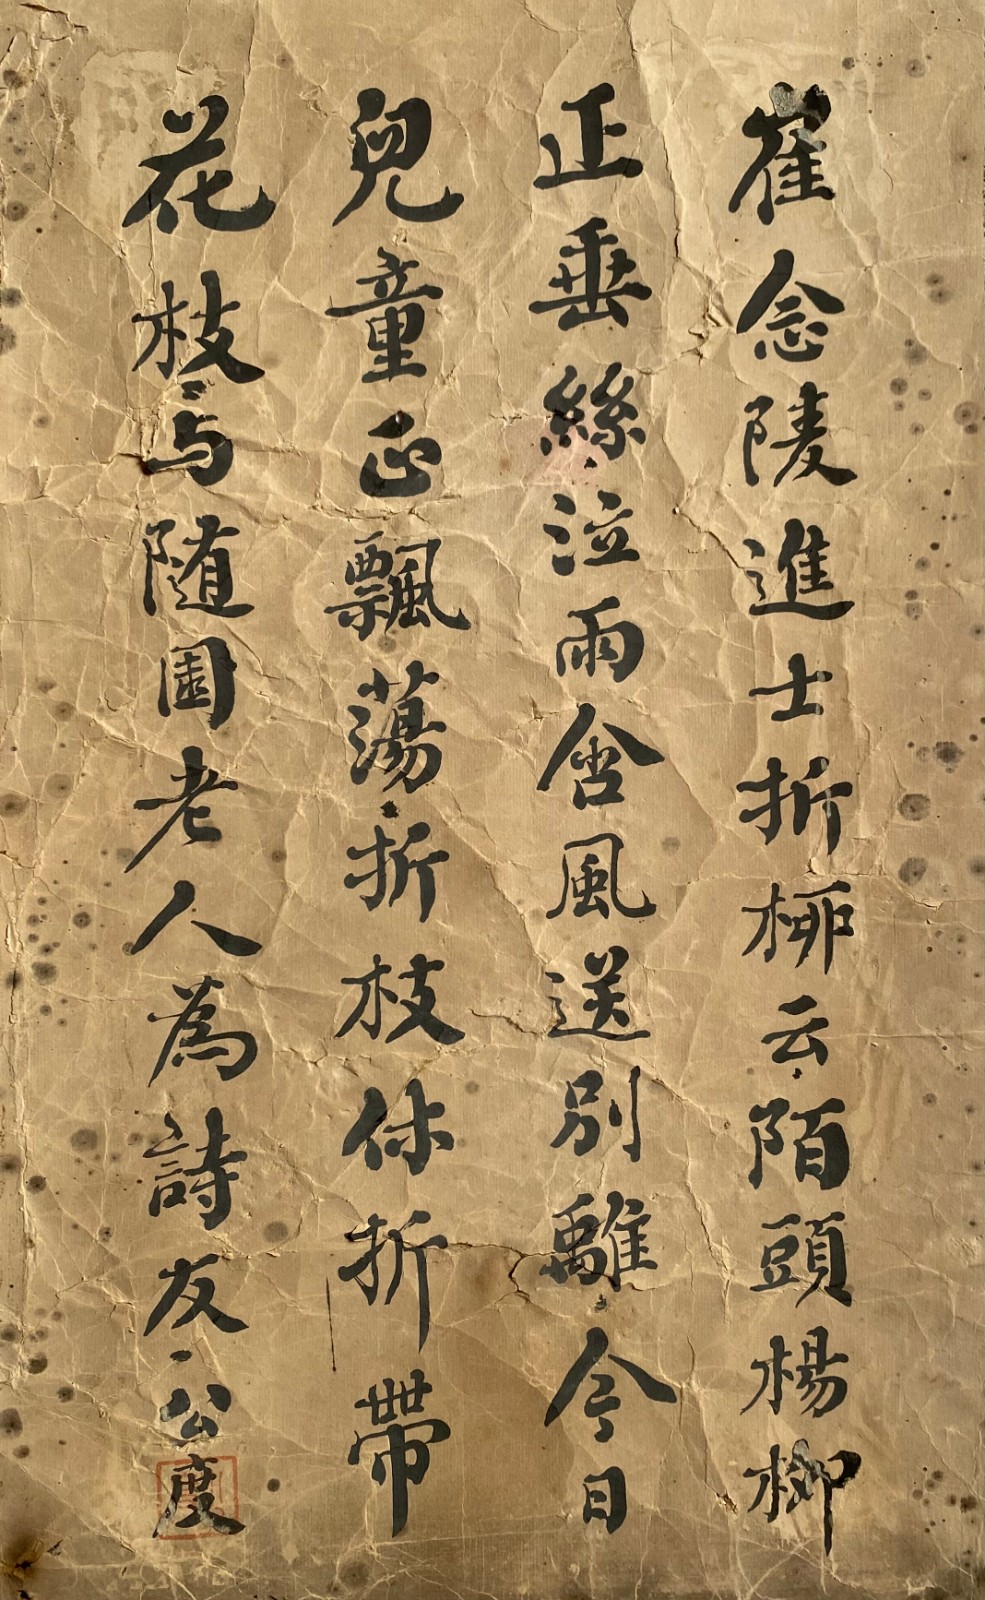 崔念陵進士折栁云陌頭楊栁
正垂絲泣雨含風送別離今日
兒童正飄蕩折枝休折帶
花枝与随園老人為詩友公度